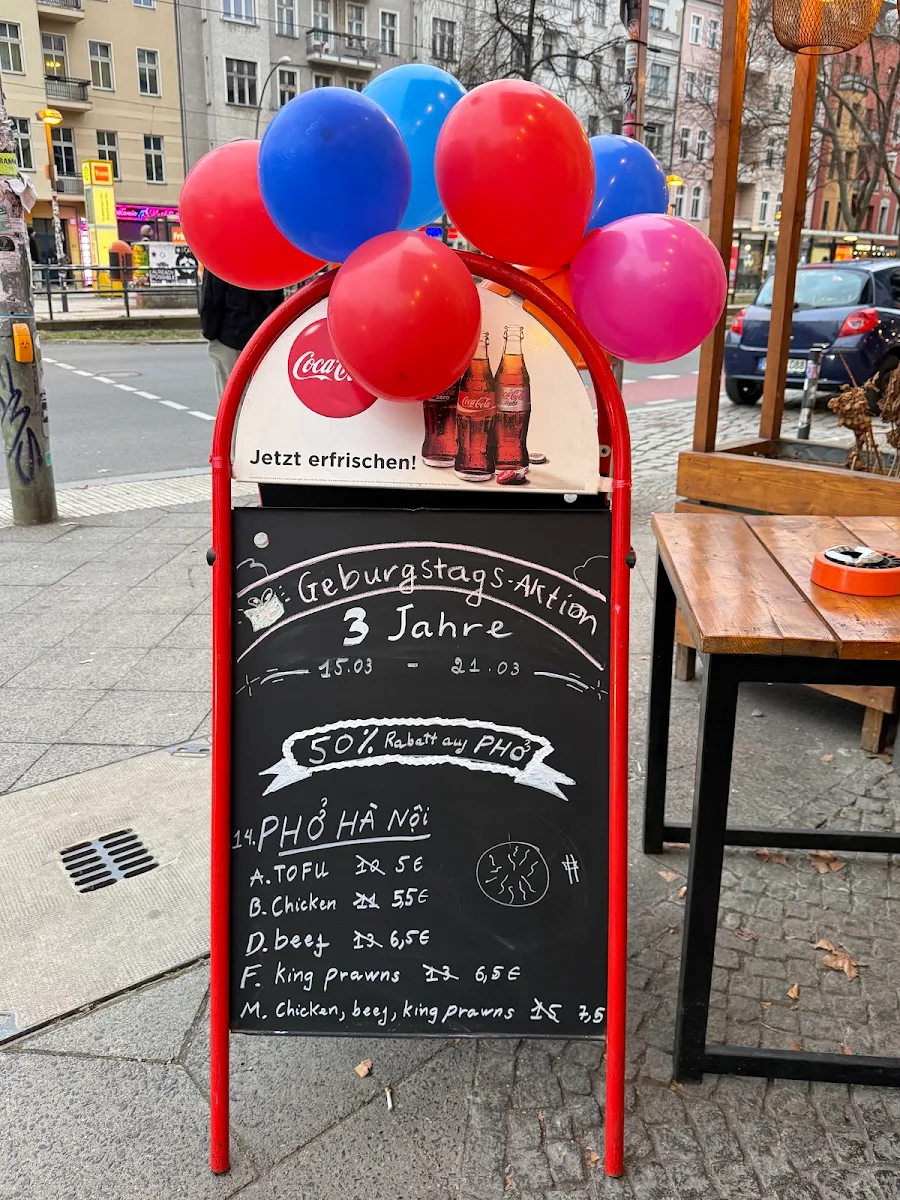 Coca-Co
Jetzt erfrischen!
Geburgstags-Aktion
3 Jahre
15.03 - 21.03
50% Rabatt auf PHở
14. PHỞ HÀ NỘi
A. TOFU 10 5€
B. Chicken 11 5,5€
D. beef 13 6,5€
F. king prawns 13 6,5€
M. Chicken, beef, king prawns 15 7,5